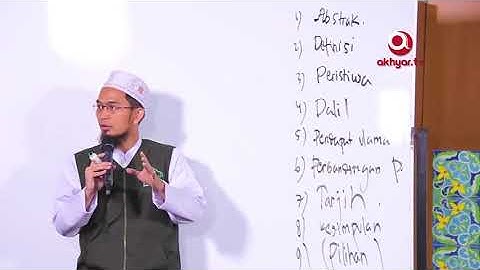 1) Abstrak.
2) Definisi
3) Peristiwa
4) Dalil
5) Pendapat ulama
6) Perbandingan P
7) Tarjih.
8) Kesimpulan
9) (Pilihan)
akhyar.tv